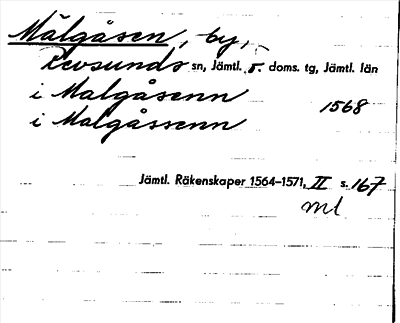 Målgåsen, by,
Revsunds sn, Jämtl. ö. doms. tg, Jämtl. län
i Malgåsenn 1568
i Malgåssenn
Jämtl. Räkenskaper 1564–1571, II s. 167
ml